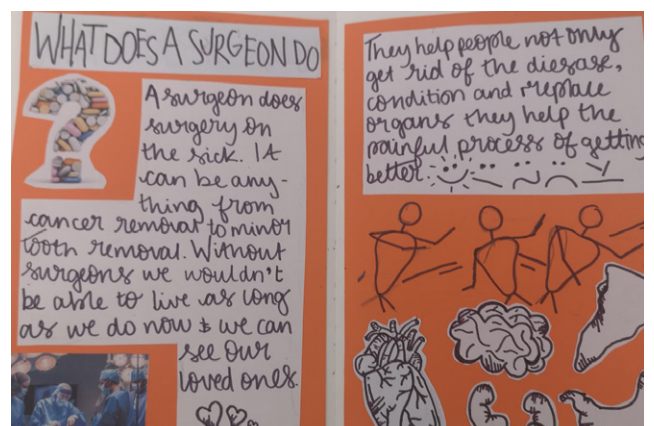 WHAT DOES A SURGEON DO
A surgeon does
surgery on
the sick. It
can be any-
thing from
cancer removal to minor
tooth removal. Without
surgeons we wouldn't
be able to live as long
as we do now & we can
see our
loved ones.
They help people not only
get rid of the diesase,
condition and rreplace
organs they help the
painful process of getting
better.